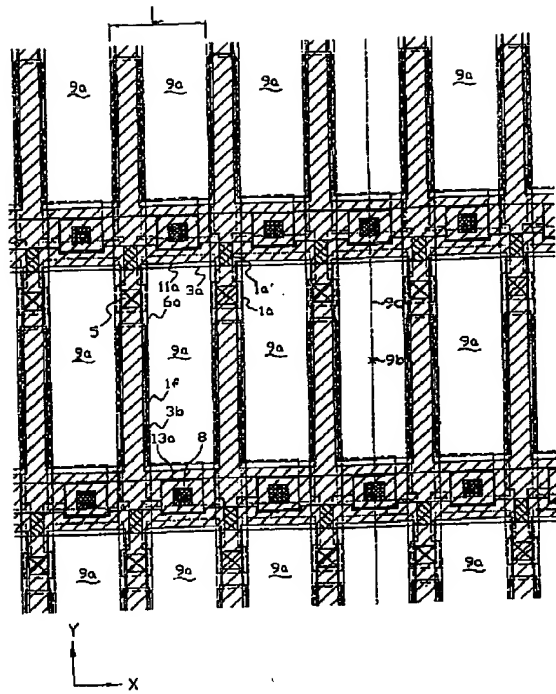 L
9a 9a 9a 9a
11a 3a 1a'
5 6a 1a 9c
9a 9a 9a 9b 9a
1f
3b
13a 8
9a 9a 9a 9a
Y
X